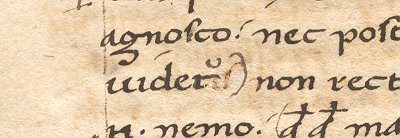 agnosco. nec post
uidet᷑) non rect
n. nemo. qq ma